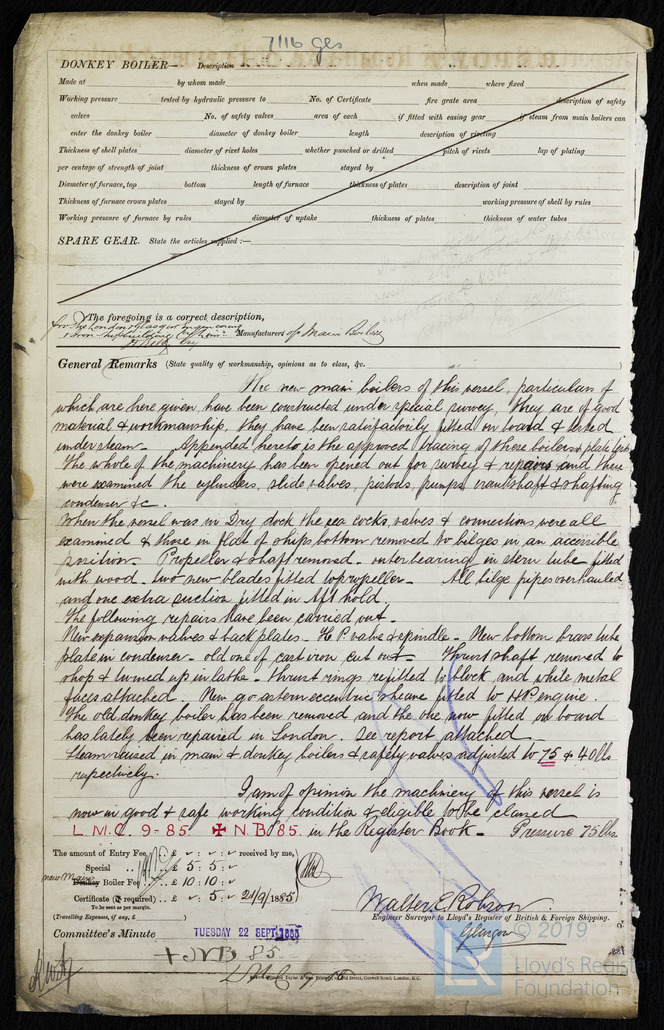 7116 Gls
DONKEY BOILER— Description
Made at by whom made when made where fixed
Working pressure tested by hydraulic pressure to No. of Certificate fire grate area description of safety
valves No. of safety valves area of each if fitted with easing gear if steam from main boilers can
enter the donkey boiler diameter of donkey boiler length description of riveting
Thickness of shell plates diameter of rivet holes whether punched or drilled pitch of rivets lap of plating
per centage of strength of joint thickness of crown plates stayed by
Diameter of furnace, top bottom length of furnace thickness of plates description of joint
Thickness of furnace crown plates stayed by working pressure of shell by rules
Working pressure of furnace by rules diameter of uptake thickness of plates thickness of water tubes
SPARE GEAR. State the articles supplied :—
The foregoing is a correct description,
for The London & Glasgow Engineering
& Iron Shipbuilding Manufacturers of Main Boilers
General Remarks (State quality of workmanship, opinions as to class, &c.
The new main boilers of this vessel, particulars of
which are here given, have been constructed under special survey, they are of good
material & workmanship, they have been satisfactorily fitted on board & tested
under steam – Appended hereto is the approved tracing of these boilers & plate lists
The whole of the machinery has been opened out for survey & repairs and there
were examined the cylinders, slide valves, pistons, pumps, crank shaft & shafting
condenser &c.
When the vessel was in Dry dock the sea cocks, valves & connections were all
examined & those in flat of ships bottom removed to bilges in an accessible
position – Propeller & shaft removed – outer bearing in stern tube fitted
with wood – two new blades fitted to propeller – All bilge pipes overhauled
and one extra suction fitted in Aft hold
The following repairs have been carried out –
New expansion valves & back plates – H.P. valve & spindle – New bottom brass tube
plate in condenser – old one of cast iron cut out – Thrust shaft removed to
shop & turned up in lathe – thrust rings refitted to block and white metal
faces attached. New go astern eccentric sheave fitted to H.P. engine.
The old donkey boiler has been removed and the one now fitted on board
has lately been repaired in London. See report attached
Steam raised in main & donkey boilers & safety valves adjusted to 75 & 40 lbs
respectively.
I am of opinion the machinery of this vessel is
now in good & safe working condition & eligible to be classed
L.M.C. 9-85 ✠ N.B. 85. in the Register Book – Pressure 75 lbs
The amount of Entry Fee £ : : received by me,
Special £ 5 : 5 :
new Main
Donkey Boiler Fee £ 10 : 10 :
Certificate (if required) £ : 5 : 24/9/1885
To be sent as per margin.
(Travelling Expenses, if any, £ )
Walter E. Robson
Engineer Surveyor to Lloyd's Register of British & Foreign Shipping.
Glasgow
Committee's Minute TUESDAY 22 SEPT 1885
+ NB 85
© 2019
Lloyd's Register
Foundation